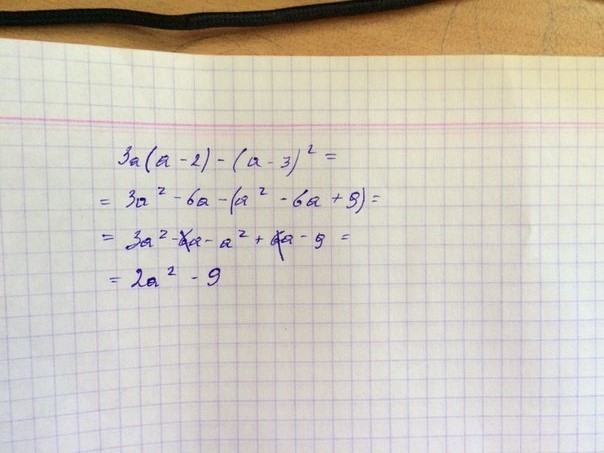 3a(a-2)-(a-3)²=
= 3a²-6a-(a²-6a+9)=
= 3a²-6a-a²+6a-9=
= 2a²-9